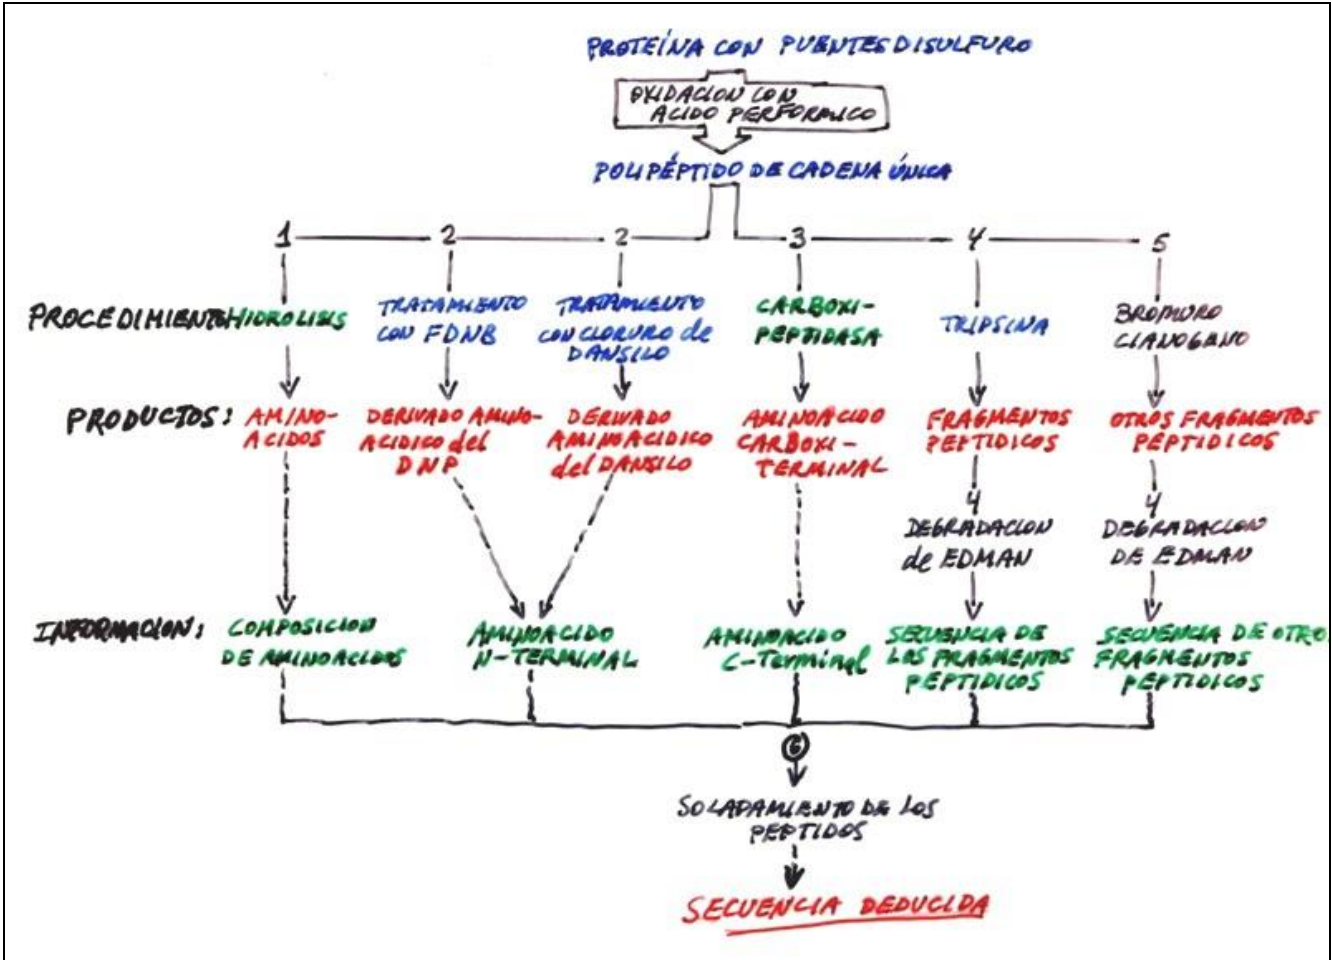 PROTEÍNA CON PUENTES DISULFURO
OXIDACION CON
ACIDO PERFORMICO
POLIPÉPTIDO DE CADENA ÚNICA
1 2 2 3 4 5
PROCEDIMIENTO HIDROLISIS
TRATAMIENTO
CON FDNB
TRATAMIENTO
CON CLORURO de
DANSILO
CARBOXI-
PEPTIDASA
TRIPSINA
BROMURO
CIANOGENO
PRODUCTOS:
AMINO-
ACIDOS
DERIVADO AMINO-
ACIDICO del
DNP
DERIVADO
AMINOACIDICO
del DANSILO
AMINOACIDO
CARBOXI-
TERMINAL
FRAGMENTOS
PEPTIDICOS
OTROS FRAGMENTOS
PEPTIDICOS
4
DEGRADACION
de EDMAN
4
DEGRADACION
DE EDMAN
INFORMACION:
COMPOSICION
DE AMINOACIDOS
AMINOACIDO
N-TERMINAL
AMINOACIDO
C-Terminal
SECUENCIA DE
LOS FRAGMENTOS
PEPTIDICOS
SECUENCIA DE OTRO
FRAGMENTOS
PEPTIDICOS
6
SOLADAMIENTO DE LOS
PEPTIDOS
SECUENCIA DEDUCIDA